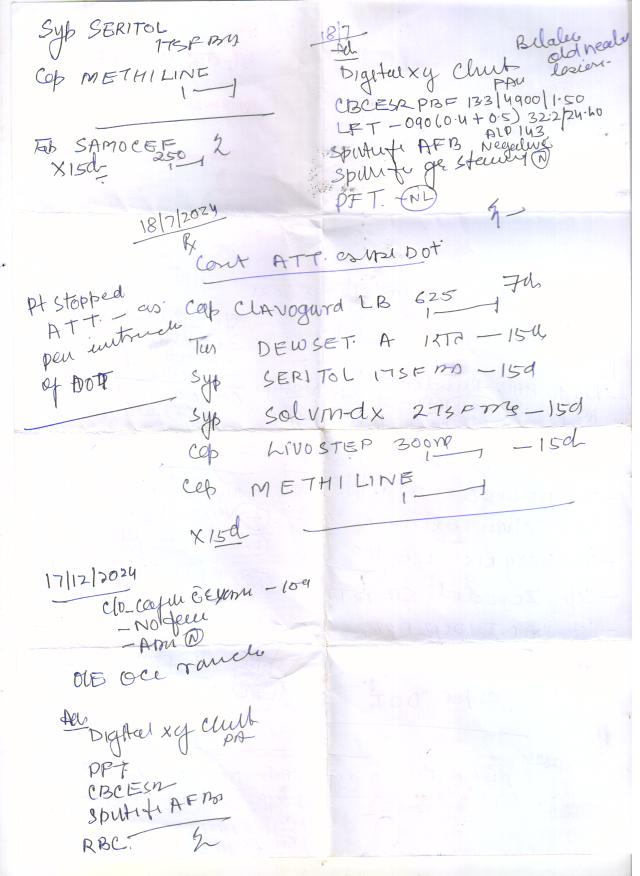 Syp SERITOL
1TSF BD
Cap METHILINE
1
Tab SAMOCEF
250
X15d
18/7
Adv
Digital xy Chest
PAV
Bilateral
old healed
lesion
CBC ESR PBF 13.3/4900/1.50
LFT - 090 (0.4 + 0.5) 32.2/24.60
ALP 143
Sputum for AFB Negative
Sputum for gr staining (N)
PFT - NL
18/7/2024
Rx
Cont ATT DOT
Pt stopped
ATT - as
per instruction
of DOT
Cap Clavogard LB 625 7d
Tab DEWSET. A - 15d
Syp SERITOL 1TSF BD - 15d
Syp Solvin-dx 2TSF - 15d
Cap LIVOSTEP 300 - 15d
Cap METHILINE
1
X15d
17/12/2024
c/o - 10d
- No fever
- (N)
O/E Occ
Adv
Digital xy Chest
PA
PFT
CBC ESR
Sputum for AFB
RBC.